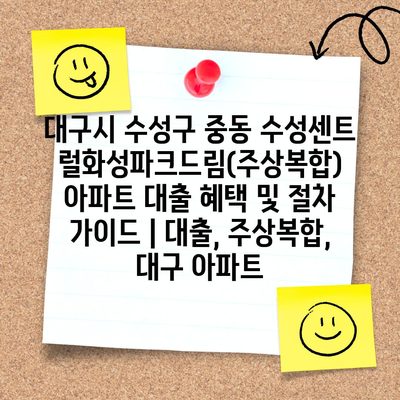 대구시 수성구 중동 수성센트
럴화성파크드림(주상복합)
아파트 대출 혜택 및 절차
가이드 | 대출, 주상복합,
대구 아파트